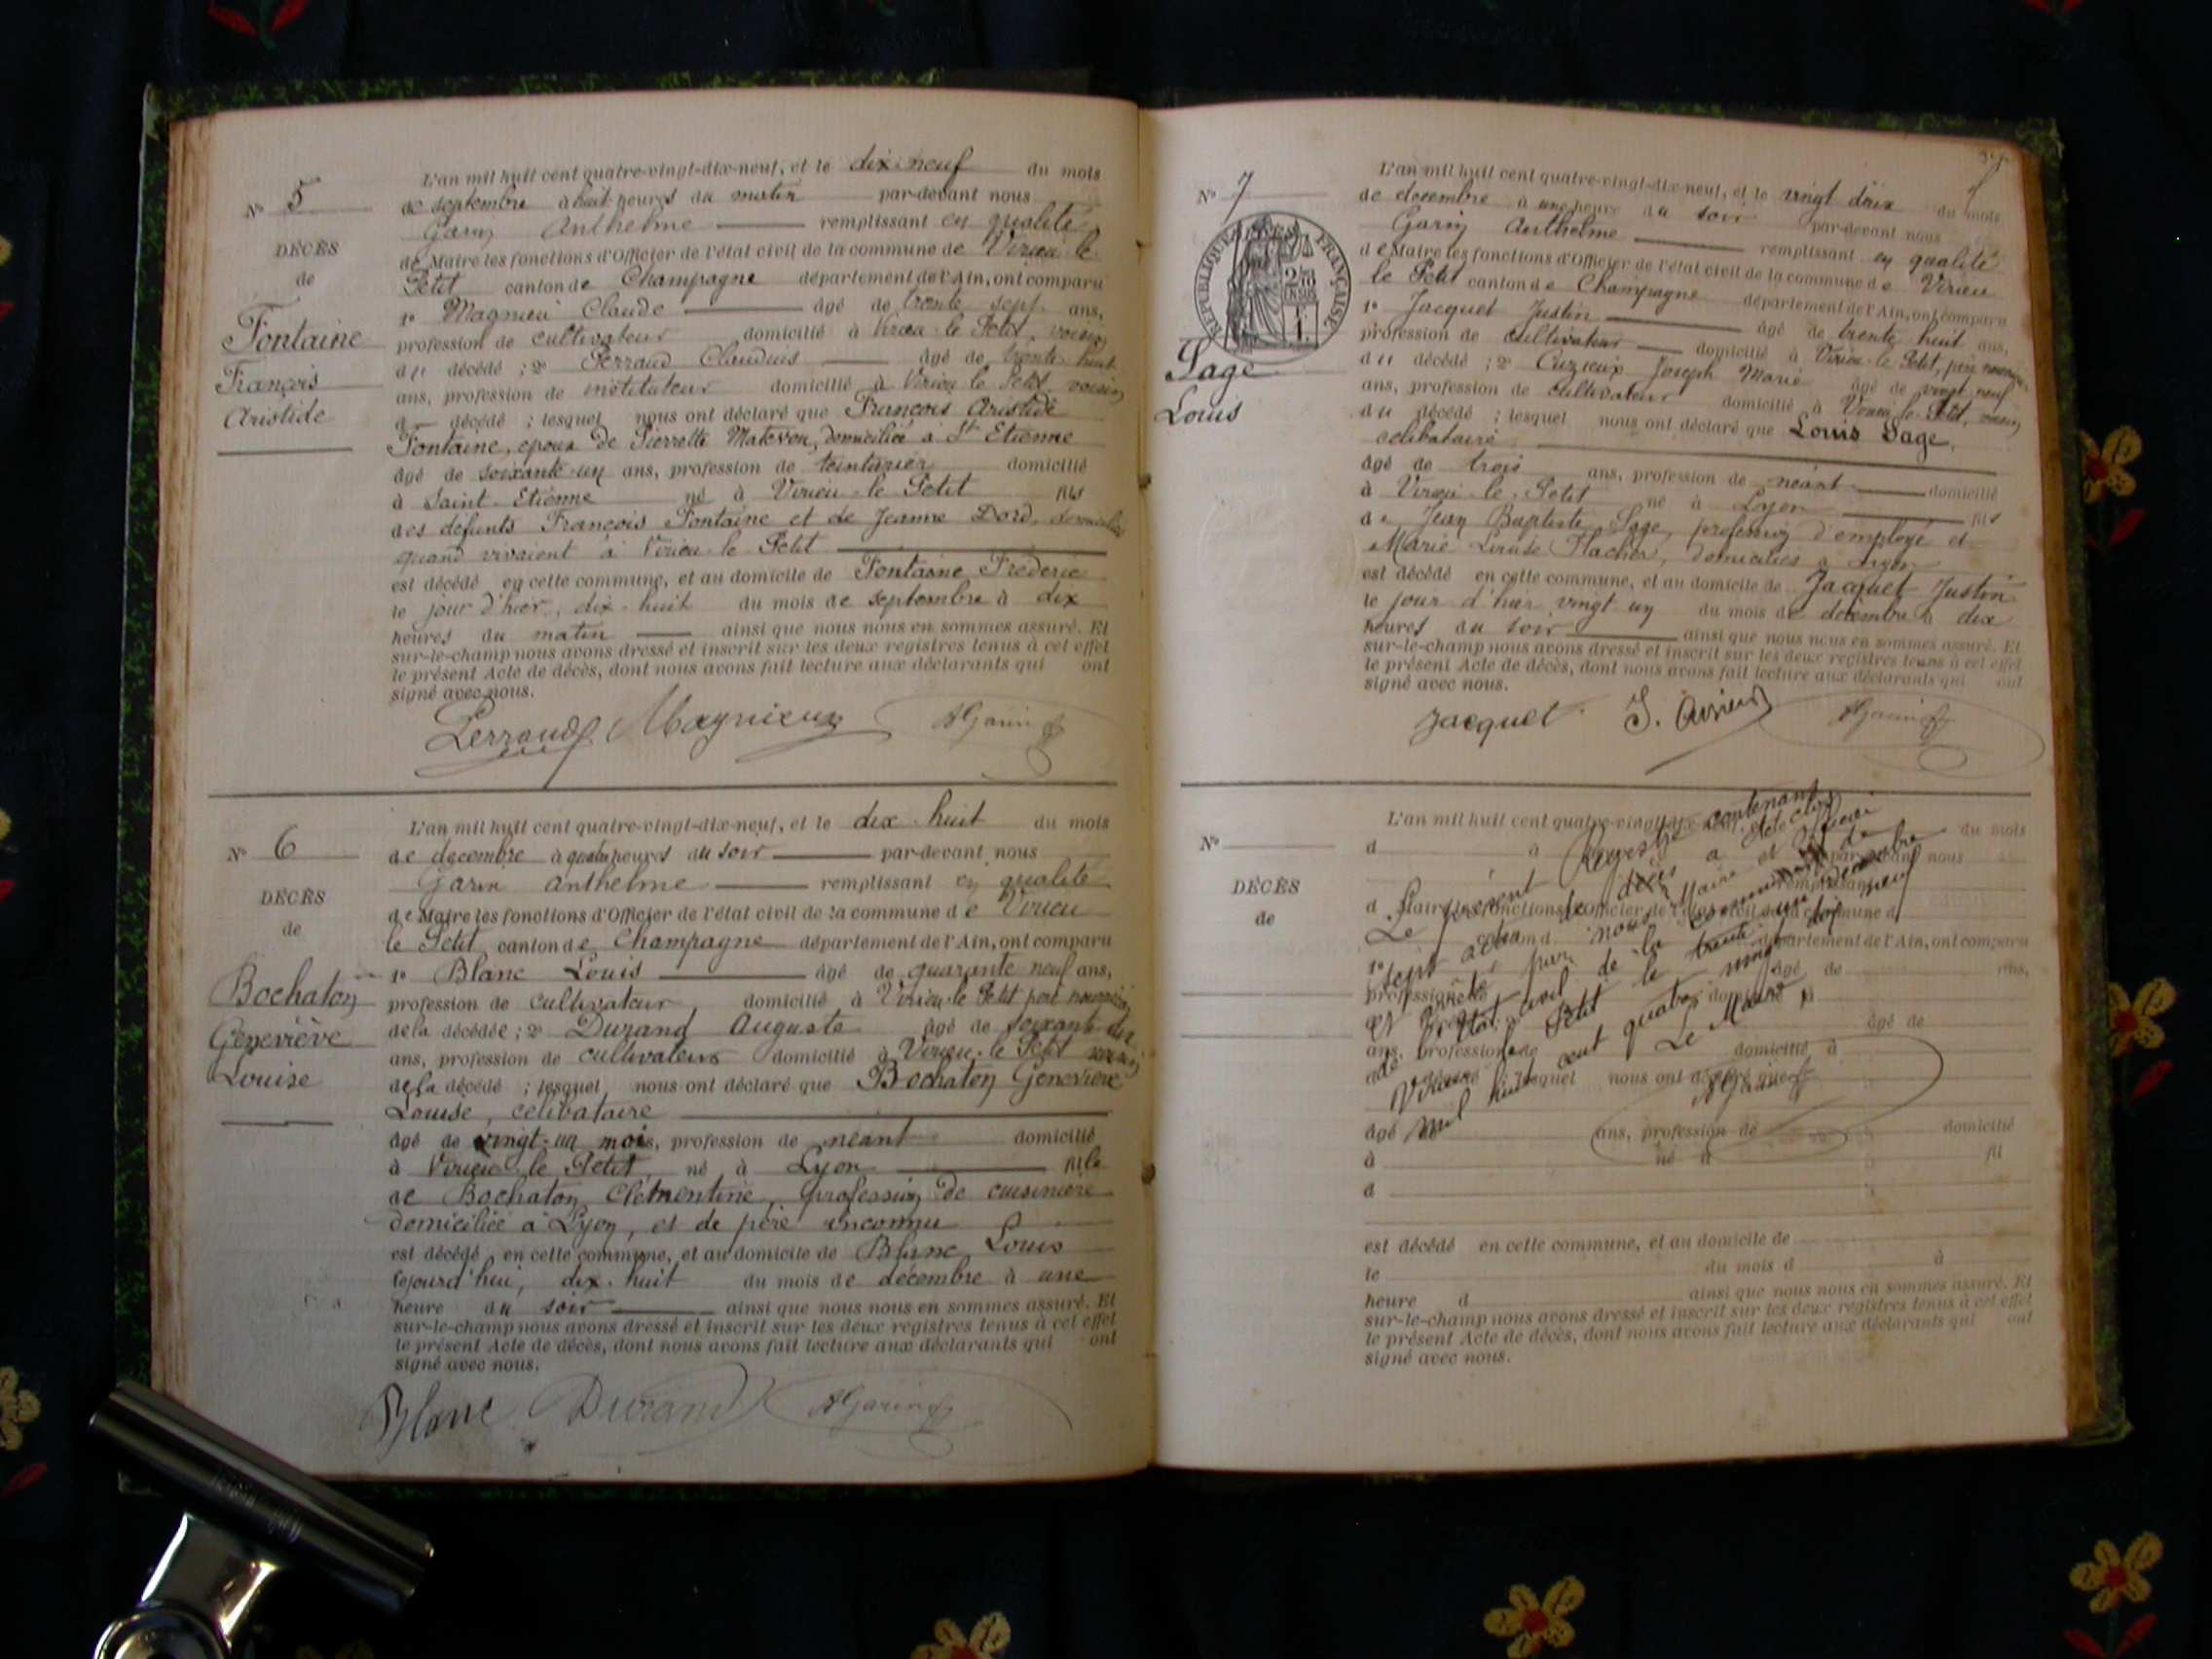 N° 5
DÉCÈS
de
Fontaine
François
Aristide
L'an mil huit cent quatre-vingt-dix-neuf, et le dix-neuf du mois
de septembre à huit heures du matin par-devant nous
Garin Anthelme remplissant en qualité
de Maire les fonctions d'Officier de l'état civil de la commune de Virieu-le-
Petit canton de Champagne département de l'Ain, ont comparu
1° Magnieu Claude âgé de trente sept ans,
profession de cultivateur domicilié à Virieu-le-Petit, voisin
du décédé ; 2° Perraud Claudius âgé de trente huit
ans, profession de instituteur domicilié à Virieu le Petit voisin
d décédé ; lesquel nous ont déclaré que François Aristide
Fontaine, époux de Pierrette Matevon, domiciliée à St Etienne
âgé de soixante-un ans, profession de teinturier domicilié
à Saint-Etienne né à Virieu-le-Petit fils
des défunts François Fontaine et de Jeanne Dord, domiciliés
quand vivaient à Virieu-le-Petit
est décédé en cette commune, et au domicile de Fontaine Frédéric
le jour d'hier, dix-huit du mois de septembre à dix
heures du matin ainsi que nous nous en sommes assuré. Et
sur-le-champ nous avons dressé et inscrit sur les deux registres tenus à cet effet
le présent Acte de décès, dont nous avons fait lecture aux déclarants qui ont
signé avec nous.
Perraud Magnieux AGarin
N° 6
DÉCÈS
de
Bochaton
Geneviève
Louise
L'an mil huit cent quatre-vingt-dix-neuf, et le dix-huit du mois
de decembre à quatre heures du soir par-devant nous
Garin Anthelme remplissant en qualité
de Maire les fonctions d'Officier de l'état civil de la commune de Virieu
le Petit canton de Champagne département de l'Ain, ont comparu
1° Blanc Louis âgé de quarante neuf ans,
profession de cultivateur, domicilié à Virieu-le-Petit père nourricier
de la décédée ; 2° Durand Auguste âgé de soixante dix
ans, profession de cultivateur domicilié à Virieu-le-Petit voisin
de la décédé ; lesquel nous ont déclaré que Bochaton Geneviève
Louise, célibataire
âgé de vingt-un mois, profession de néant domicilié
à Virieu-le-Petit, né à Lyon fille
de Bochaton Clémentine, profession de cuisinière
domiciliée à Lyon, et de père inconnu
est décédé en cette commune, et au domicile de Blanc Louis
cejourd'hui, dix-huit du mois de décembre à une
heure du soir ainsi que nous nous en sommes assuré. Et
sur-le-champ nous avons dressé et inscrit sur les deux registres tenus à cet effet
le présent Acte de décès, dont nous avons fait lecture aux déclarants qui ont
signé avec nous.
Blanc Durand AGarin
N° 7
RÉPUBLIQUE FRANÇAISE
Sage
Louis
L'an mil huit cent quatre-vingt-dix-neuf, et le vingt deux du mois
de decembre à une heure du soir par-devant nous
Garin Anthelme remplissant en qualité
de Maire les fonctions d'Officier de l'état civil de la commune de Virieu
le Petit canton de Champagne département de l'Ain, ont comparu
1° Jacquet Justin âgé de trente huit ans,
profession de cultivateur domicilié à Virieu-le-Petit, père nourricier
du décédé ; 2° Cuzieux Joseph Marie âgé de vingt neuf
ans, profession de cultivateur domicilié à Virieu-le-Petit, voisin
du décédé ; lesquel nous ont déclaré que Louis Sage,
celibataire
âgé de trois ans, profession de néant domicilié
à Virieu-le-Petit né à Lyon fils
de Jean Baptiste Sage, profession d'employé et
Marie Louise Flacher, domiciliés à Lyon
est décédé en cette commune, et au domicile de Jacquet Justin
le jour d'hier vingt un du mois de décembre à dix
heures du soir ainsi que nous nous en sommes assuré. Et
sur-le-champ nous avons dressé et inscrit sur les deux registres tenus à cet effet
le présent Acte de décès, dont nous avons fait lecture aux déclarants qui ont
signé avec nous.
Jacquet AGarin
N°
DÉCÈS
de
L'an mil huit cent quatre-vingt-dix-neuf, et le du mois
d à par-devant nous
remplissant
d Maire les fonctions d'Officier de l'état civil de la commune d
canton d département de l'Ain, ont comparu
1° âgé de ans,
profession de domicilié à
âgé de
ans, profession de domicilié à
d décédé ; lesquel nous ont déclaré que
âgé de ans, profession de domicilié
à né à fil
d
est décédé en cette commune, et au domicile de
le du mois d à
heure d ainsi que nous nous en sommes assuré. Et
sur-le-champ nous avons dressé et inscrit sur les deux registres tenus à cet effet
le présent Acte de décès, dont nous avons fait lecture aux déclarants qui ont
signé avec nous.
Le présent Registre contenant
sept actes de décès a été clos
et arrêté par nous Maire et officier
de l'état civil de la commune de
Virieu-le-Petit le trente un décembre
mil huit cent quatre vingt dix neuf
Le Maire
AGarin